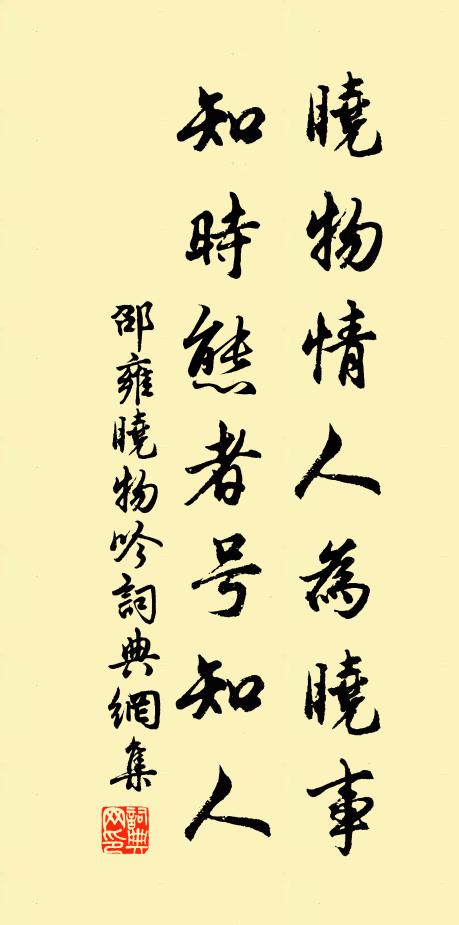 曉物情人為曉事
知時態者号知人
邵雍曉物吟詞典網集
詞典
网印